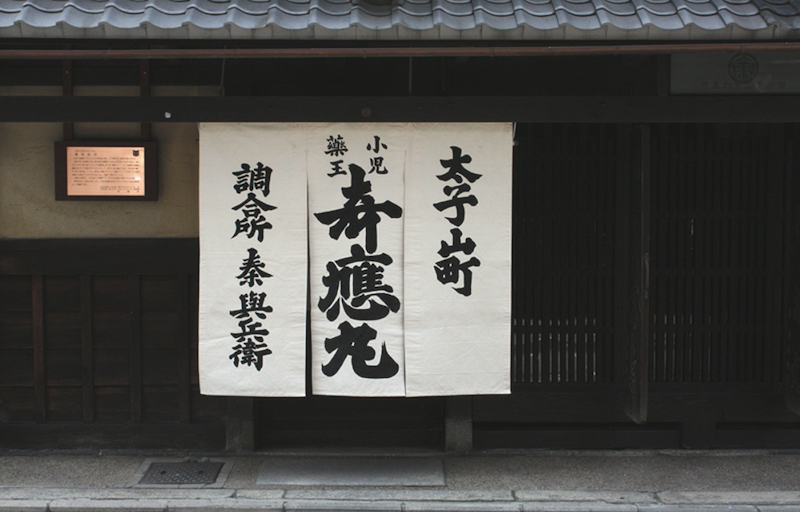 太子山町
小児
藥王
奇應丸
調合所 秦與兵衛